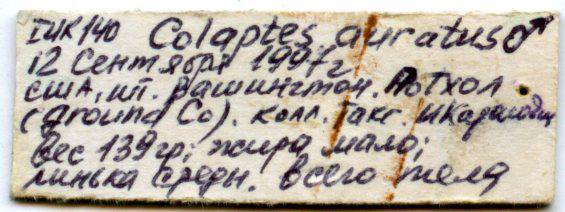 IИК140 Colaptes auratus ♂
12 Сентября 1997г.
США, шт. Вашингтон. Потхол
(Ground Co). Колл. Такс.
Вес 139гр; жира мало;
линька средн. всего тела